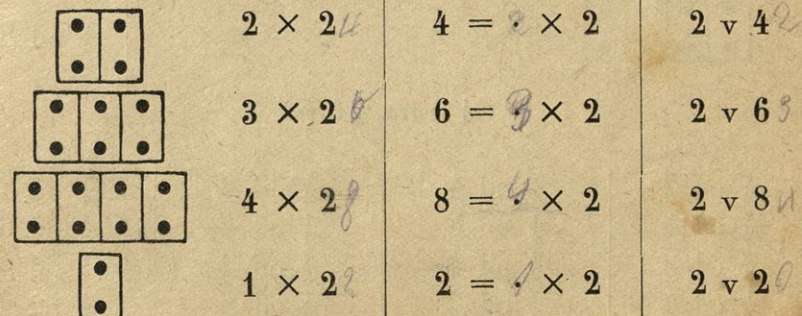 2 × 2 4 4 = 2 × 2 2 v 4 2
3 × 2 6 6 = 3 × 2 2 v 6 3
4 × 2 8 8 = 4 × 2 2 v 8 4
1 × 2 2 2 = 1 × 2 2 v 2